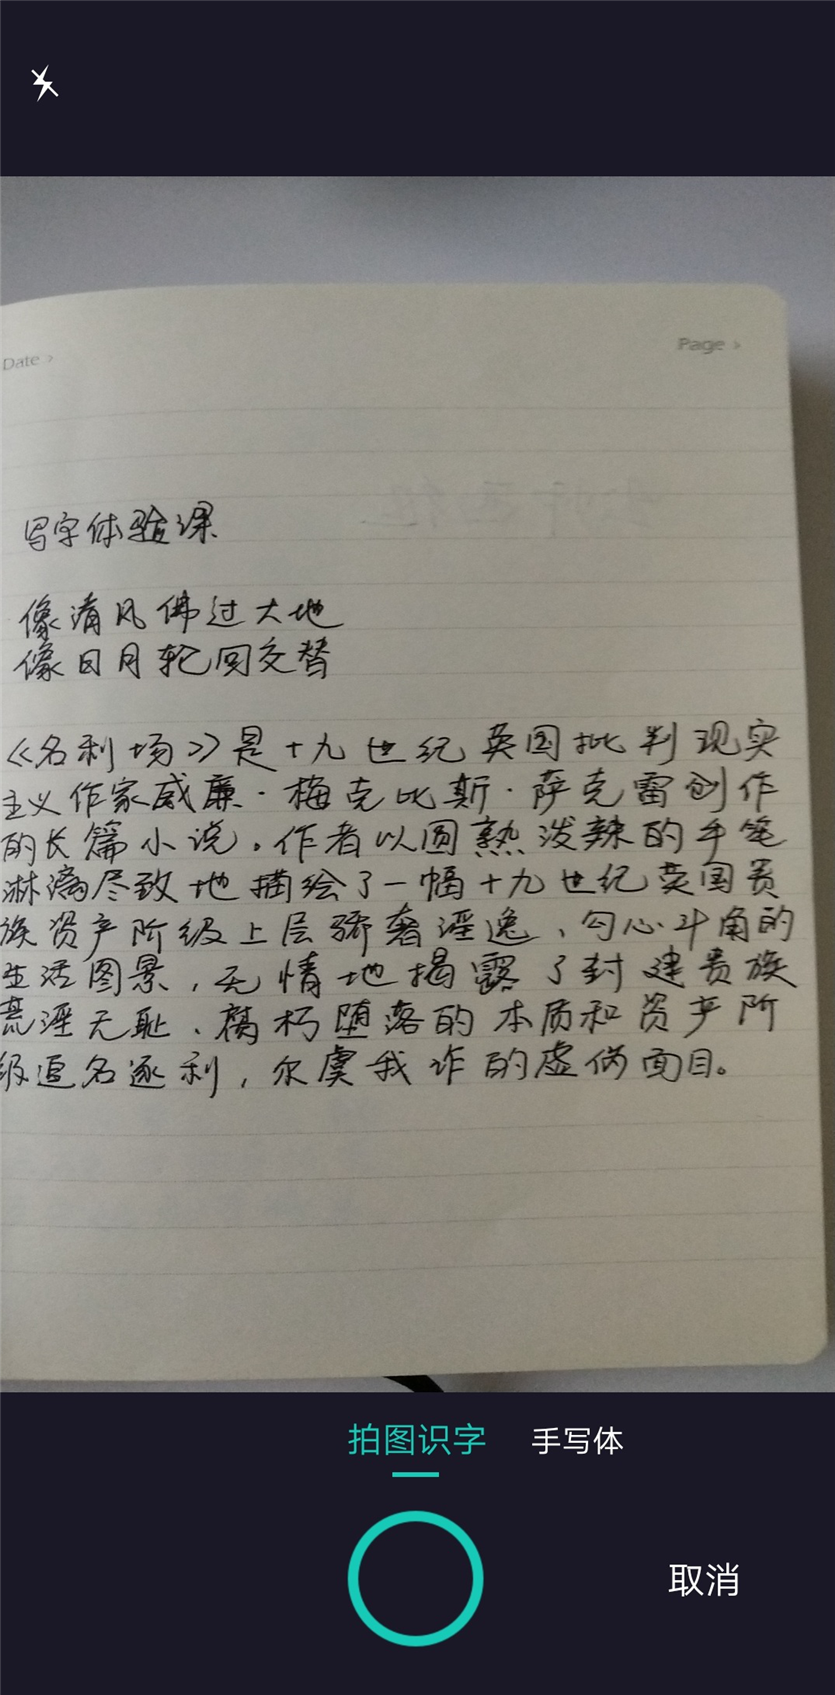 Date >
Page >
写字体验课
像清风佛过大地
像日月轮回交替
《名利场》是十九世纪英国批判现实
主义作家威廉·梅克比斯·萨克雷创作
的长篇小说。作者以圆熟泼辣的手笔
淋漓尽致地描绘了一幅十九世纪英国贵
族资产阶级上层骄奢淫逸、勾心斗角的
生活图景，无情地揭露了封建贵族
荒淫无耻、腐朽堕落的本质和资产阶
级追名逐利，尔虞我诈的虚伪面目。
拍图识字 手写体
取消